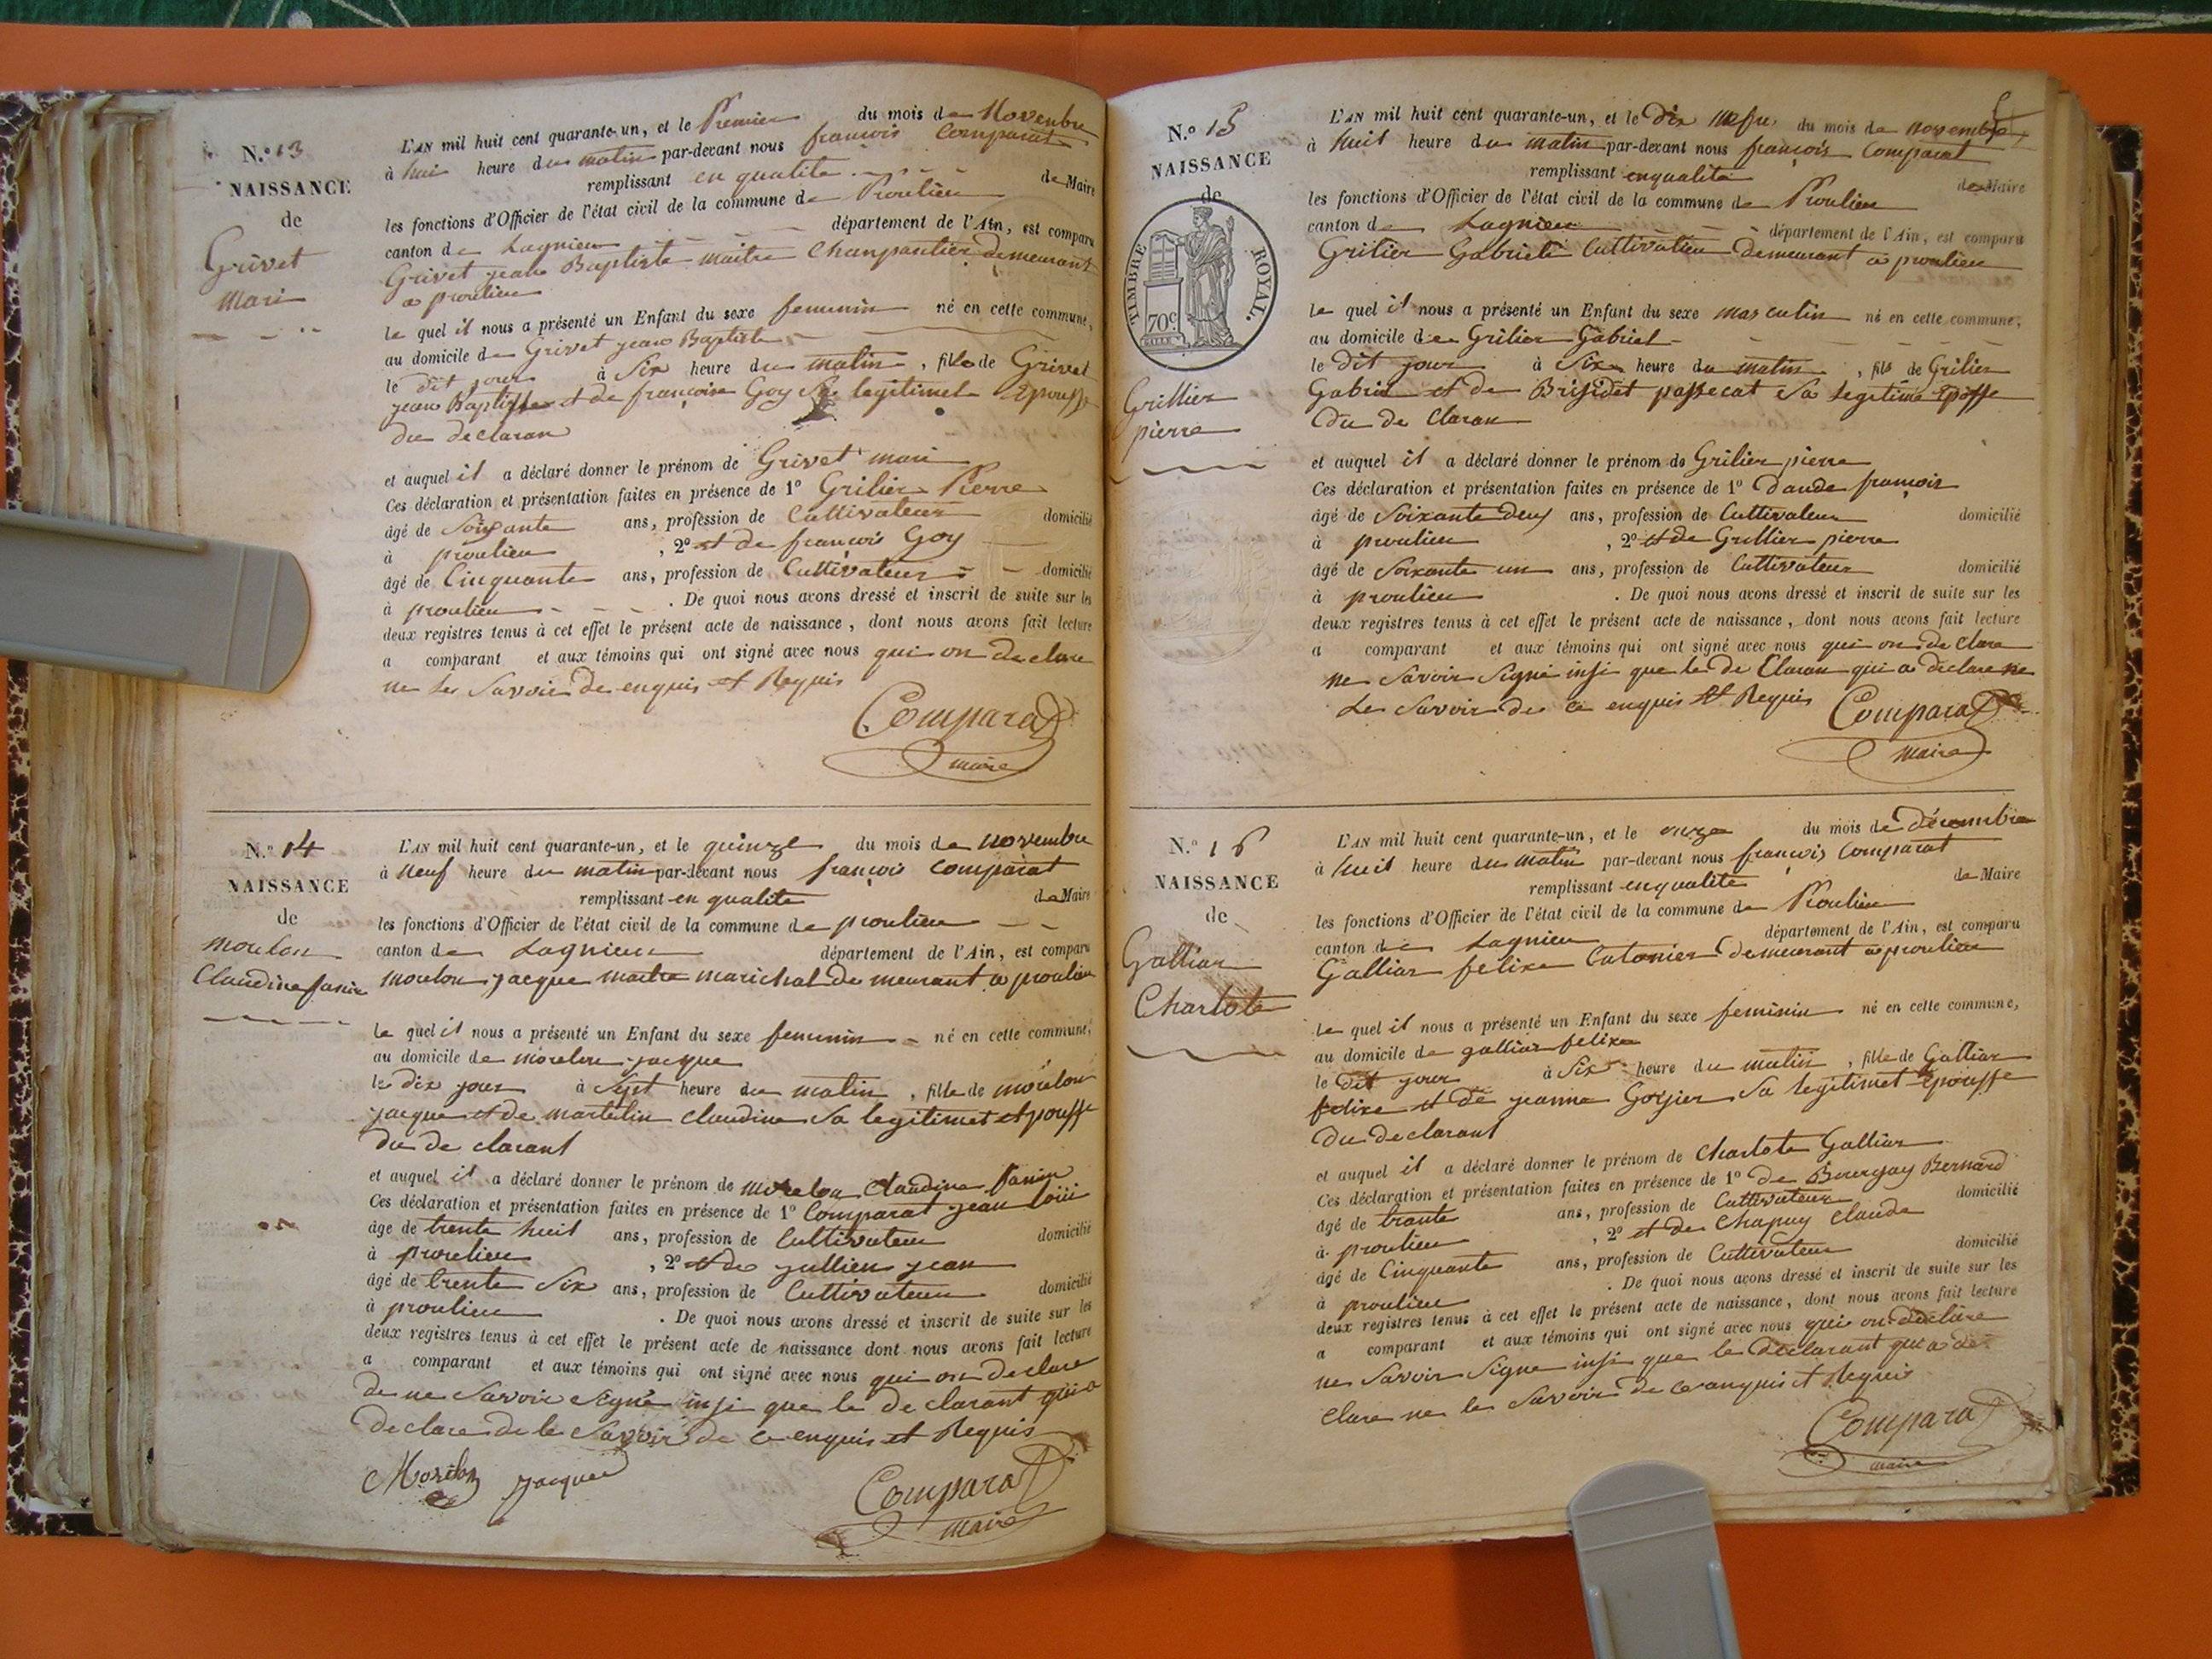 N.º 13
NAISSANCE
de
Grivet
Mari
L'AN mil huit cent quarante-un, et le Premier du mois de Novenbre
à hui heure du matin par-devant nous françois Comparat
remplissant en qualite de Maire
les fonctions d'Officier de l'état civil de la commune de Proulieu
canton de Lagnieu département de l'Ain, est comparu
Grivet jean Baptiste maitre Charpantier demeurant
a proulieu
le quel il nous a présenté un Enfant du sexe feminin né en cette commune,
au domicile de Grivet jean Baptiste
le dit jour à Six heure du matin, fille de Grivet
jean Baptiste et de françoise Goy Sa legitimet Epousse
du declaran
et auquel il a déclaré donner le prénom de Grivet mari
Ces déclaration et présentation faites en présence de 1º Grilier Pierre
âgé de Soixante ans, profession de Cultivateur domicilié
à proulieu, 2º et de françois Goy
âgé de Cinquante ans, profession de Cultivateur domicilié
à proulieu. De quoi nous avons dressé et inscrit de suite sur les
deux registres tenus à cet effet le présent acte de naissance, dont nous avons fait lecture
a comparant et aux témoins qui ont signé avec nous qui on declare
ne les Savoir de enquis et Requis
Comparat
maire
N.º 14
NAISSANCE
de
Morelon
Claudine fanie
L'AN mil huit cent quarante-un, et le quinze du mois de novembre
à Neuf heure du matin par-devant nous françois Comparat
remplissant en qualite de Maire
les fonctions d'Officier de l'état civil de la commune de proulieu
canton de Lagnieu département de l'Ain, est comparu
morelon jacque maitre marichal demeurant a proulieu
le quel il nous a présenté un Enfant du sexe feminin né en cette commune,
au domicile de morelon jacque
le dix jour à Sept heure du matin, fille de morelon
jacque et de martelin Claudine Sa legitimet epousse
du de clarant
et auquel il a déclaré donner le prénom de morelon Claudine fanie
Ces déclaration et présentation faites en présence de 1º Comparat jean loui
âgé de trente huit ans, profession de Cultivateur domicilié
à proulieu, 2º et de jullien jean
âgé de trente Six ans, profession de Cultivateur domicilié
à proulieu. De quoi nous avons dressé et inscrit de suite sur les
deux registres tenus à cet effet le présent acte de naissance dont nous avons fait lecture
a comparant et aux témoins qui ont signé avec nous qui on declare
de ne Savoir Signé insi que le de clarant qui a
declare de le Savoir de ce enquis et Requis
Morelon jacque
Comparat
maire
N.º 15
NAISSANCE
de
TIMBRE ROYAL.
70c.
Grillier
pierre
L'AN mil huit cent quarante-un, et le dix Nefu du mois de novembre
à huit heure du matin par-devant nous françois Comparat
remplissant enqualite de Maire
les fonctions d'Officier de l'état civil de la commune de Proulieu
canton de Lagnieu département de l'Ain, est comparu
Grilier Gabriele Cultivateur demeurant a proulieu
le quel il nous a présenté un Enfant du sexe masculin né en cette commune,
au domicile de Grilier Gabriel
le dit jour à Six heure du matin, fils de Grilier
Gabriel et de Brisidet passecat Sa legitime Eposse
du de Claran
et auquel il a déclaré donner le prénom de Grilier pierre
Ces déclaration et présentation faites en présence de 1º Dande françois
âgé de Soixante deux ans, profession de Cultivateur domicilié
à proulieu, 2º et de Grillier pierre
âgé de Soixante un ans, profession de Cultivateur domicilié
à proulieu. De quoi nous avons dressé et inscrit de suite sur les
deux registres tenus à cet effet le présent acte de naissance, dont nous avons fait lecture
a comparant et aux témoins qui ont signé avec nous qui on de Clare
ne Savoir Signé insi que le de Claran qui a declare ne
Le Savoir de ce enquis et Requis
Comparat
maire
N.º 16
NAISSANCE
de
Galliar
Charlote
L'AN mil huit cent quarante-un, et le onze du mois de décembre
à huit heure du matin par-devant nous françois Comparat
remplissant enqualite de Maire
les fonctions d'Officier de l'état civil de la commune de Proulieu
canton de Lagnieu département de l'Ain, est comparu
Galliar felixe Cutonier demeurant a proulieu
le quel il nous a présenté un Enfant du sexe feminin né en cette commune,
au domicile de galliar felixe
le dit jour à Six heure du matin, fille de Galliar
felixe et de jeanne Gorjier Sa legitimet Epousse
du declarant
et auquel il a déclaré donner le prénom de Charlote Galliar
Ces déclaration et présentation faites en présence de 1º de Bourgay Bernard
âgé de trante ans, profession de Cultivateur domicilié
à proulieu, 2º et de Chapuy Claude
âgé de Cinquante ans, profession de Cultivateur domicilié
à proulieu. De quoi nous avons dressé et inscrit de suite sur les
deux registres tenus à cet effet le présent acte de naissance, dont nous avons fait lecture
a comparant et aux témoins qui ont signé avec nous qui on declare
ne Savoir Signe insi que le declarant qui a de
Clare ne le Savoir de ce anquis et Requis
Comparat
maire